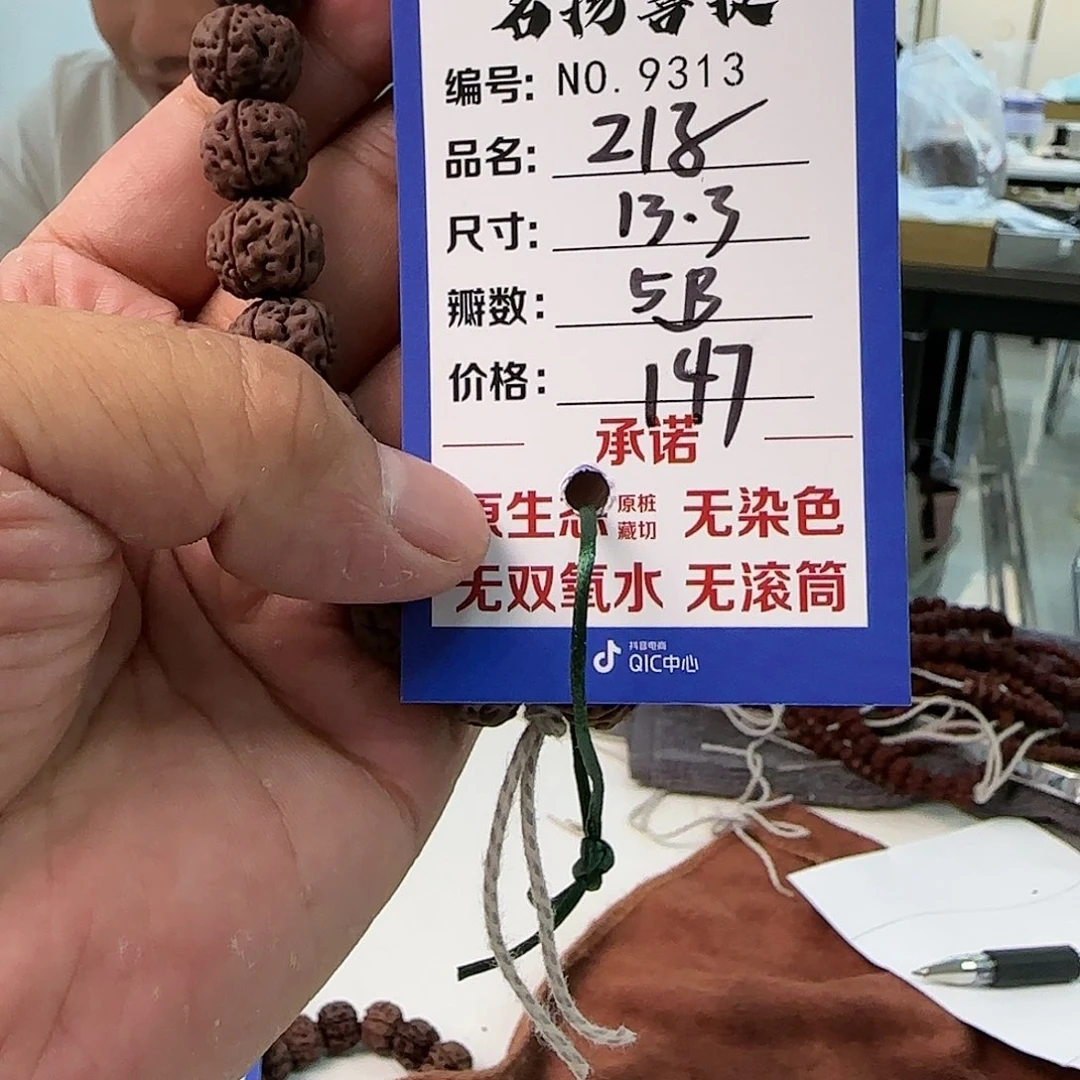 名扬菩提
编号: NO. 9313
品名: 218
尺寸: 13.3
瓣数: 5B
价格: 147
承诺
原生态 原桩藏切 无染色
无双氧水 无滚筒
抖音电商
QIC中心